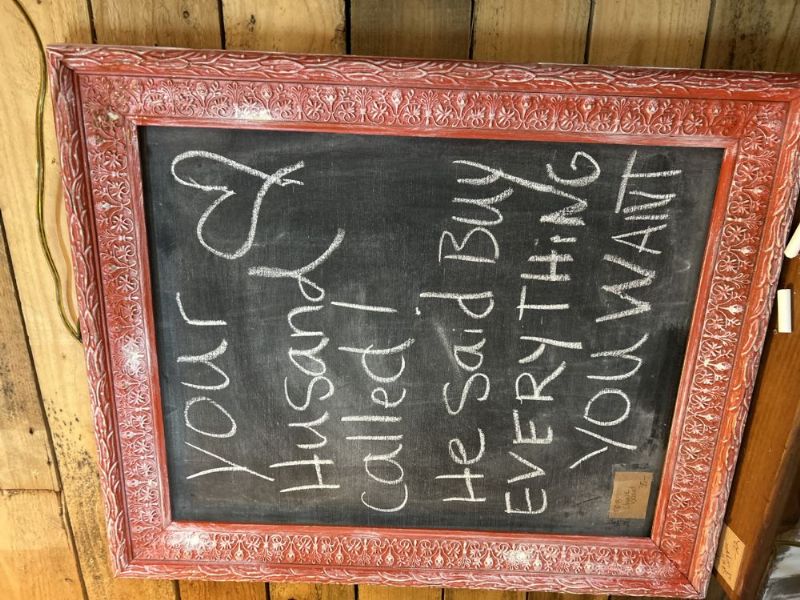 your
Husand
called!
He said Buy
EVERYTHING
YOU WANT